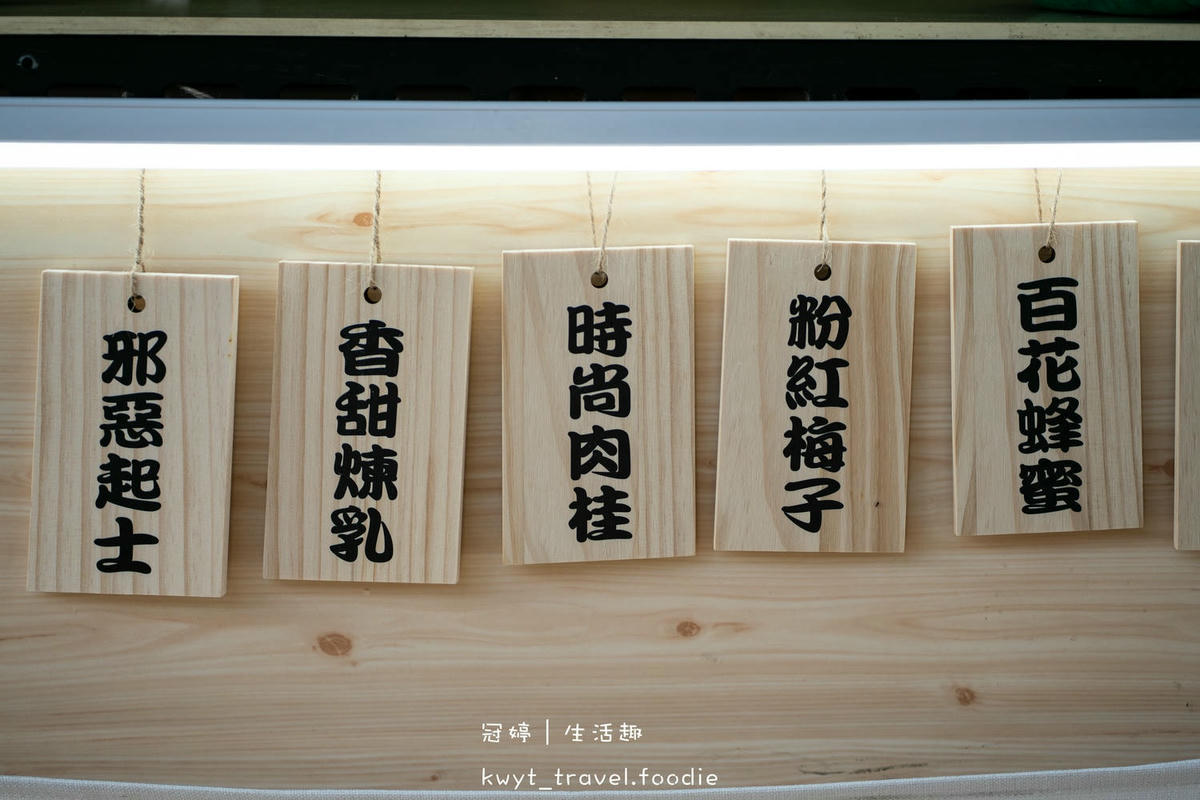 邪惡起士
香甜煉乳
時尚肉桂
粉紅梅子
百花蜂蜜
冠婷｜生活趣
kwyt_travel.foodie